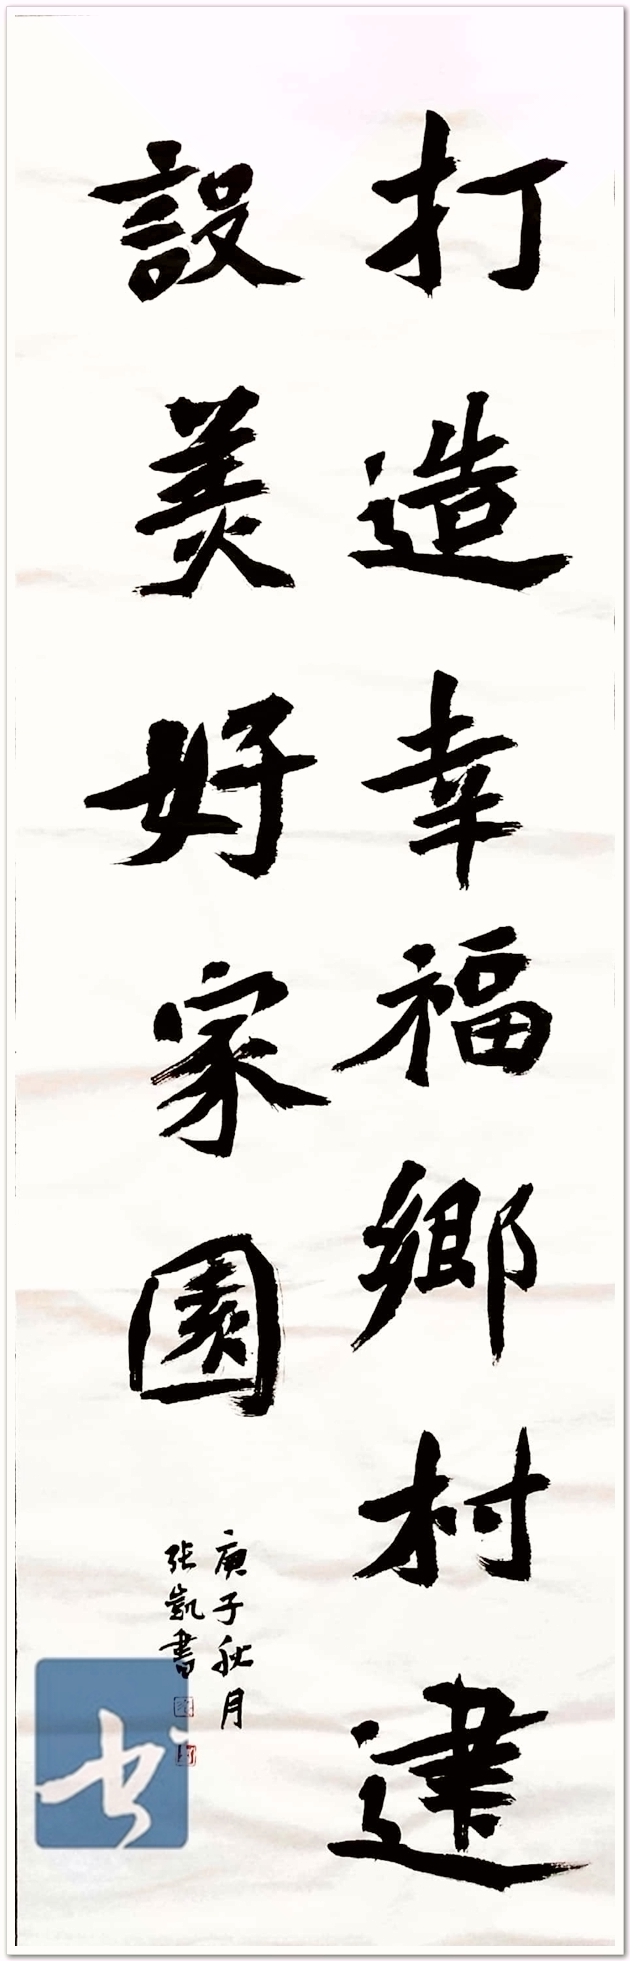 打造幸福鄉村建
設美好家園
庚子秋月
張凱書
书